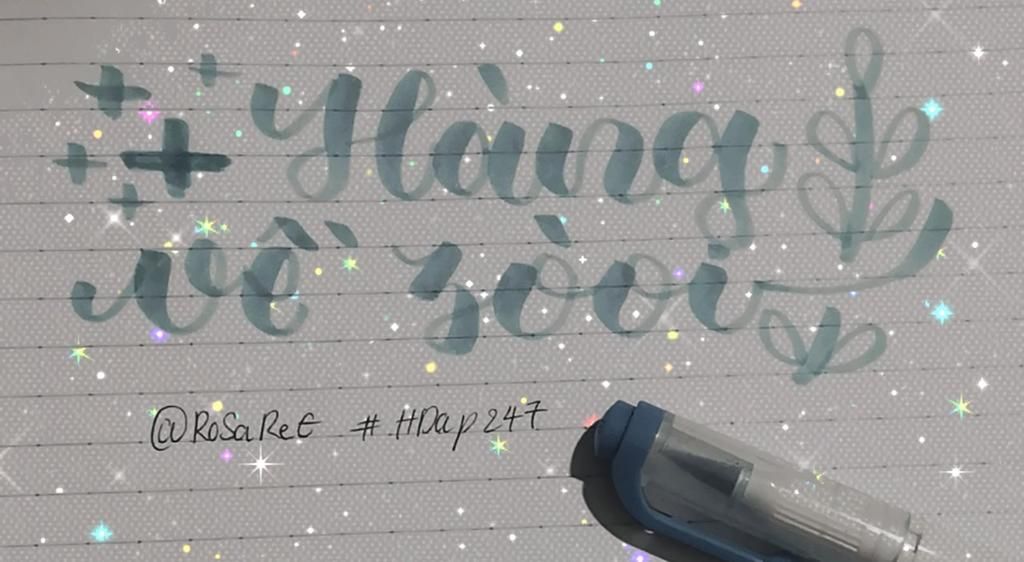 Hàng
về ròoi
@RoSaReE # HDap247